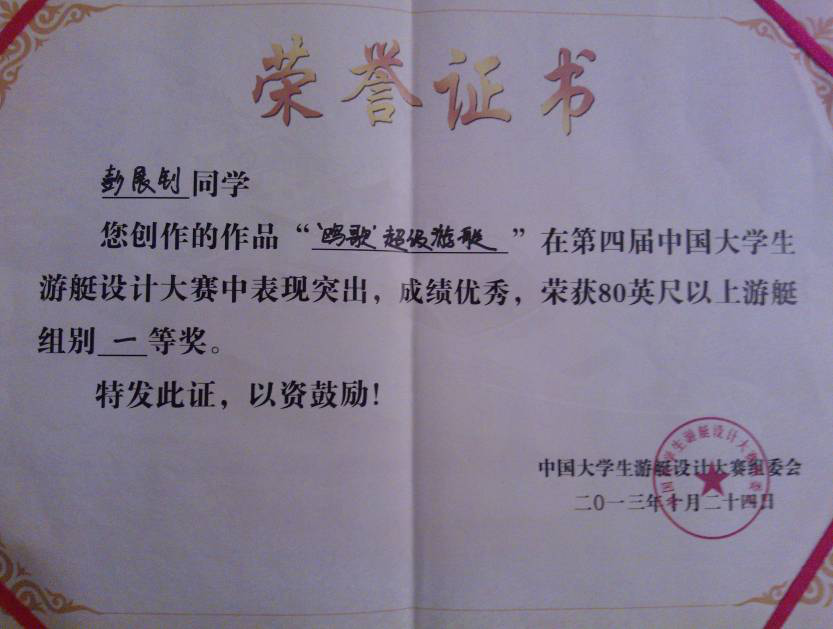 荣誉证书
彭展钊同学
您创作的作品“‘鸥歌’超级游艇”在第四届中国大学生
游艇设计大赛中表现突出，成绩优秀，荣获80英尺以上游艇
组别一等奖。
特发此证，以资鼓励！
中国大学生游艇设计大赛组委会
二〇一三年十月二十四日